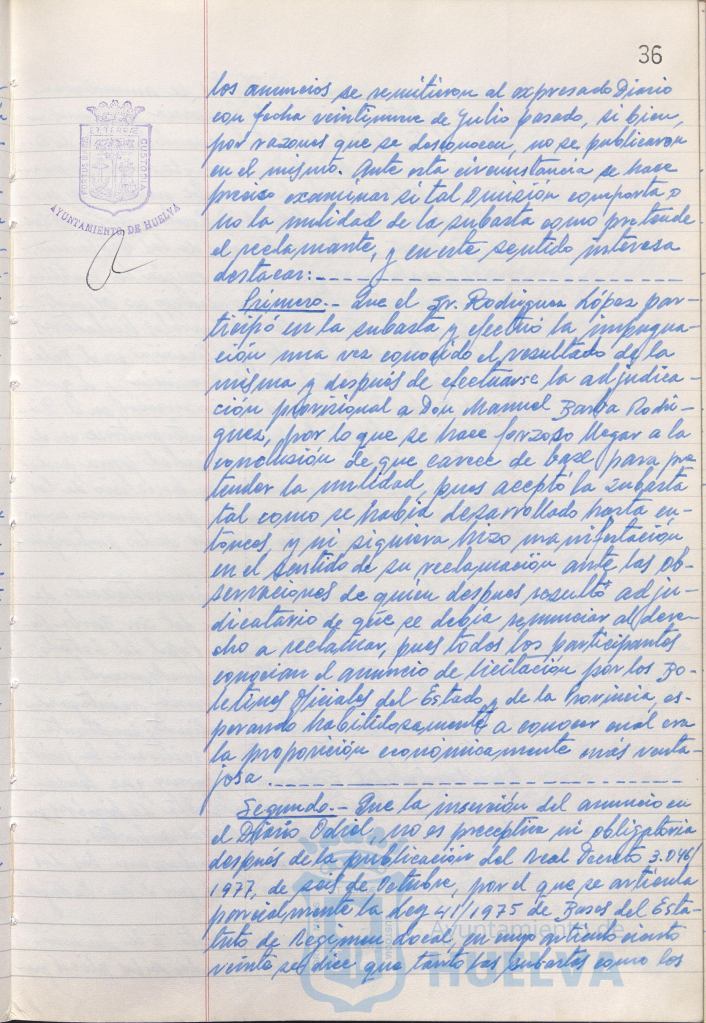 36
PORTUS MARIS
ET TERRAE
CUSTODIA
AYUNTAMIENTO DE HUELVA
los anuncios se remitieron al expresado Diario
con fecha veintinueve de Julio pasado, si bien,
por razones que se desconocen, no se publicaron
en el mismo. Ante esta circunstancia se hace
preciso examinar si tal omisión comporta o
no la nulidad de la subasta como pretende
el reclamante, y en este sentido interesa
destacar:
Primero.- Que el Sr. Rodríguez López par-
ticipó en la subasta y efectuó la impugna-
ción una vez conocido el resultado de la
misma y después de efectuarse la adjudica-
ción provisional a Don Manuel Barba Rodrí-
guez, por lo que se hace forzoso llegar a la
conclusión de que carece de base para pre
tender la nulidad, pues aceptó la subasta
tal como se había desarrollado hasta en-
tonces, y ni siquiera hizo manifestación
en el sentido de su reclamación ante las ob-
servaciones de quien despues resultó adju-
dicatario de que se debía renunciar al dere-
cho a reclamar, pues todos los participantes
conocían el anuncio de licitación por los Bo-
letines Oficiales del Estado y de la Provincia, es-
perando habilidosamente a conocer cual era
la proposición económicamente más venta-
josa.
Segundo.- Que la inserción del anuncio en
el Diario Odiel, no es preceptiva ni obligatoria
después de la publicación del Real Decreto 3.046/
1977, de seis de Octubre, por el que se articula
parcialmente la Ley 41/1975 de Bases del Esta-
tuto de Régimen Local, en cuyo artículo ciento
veinte se dice que tanto las subastas como los
Ayuntamiento de
HUELVA